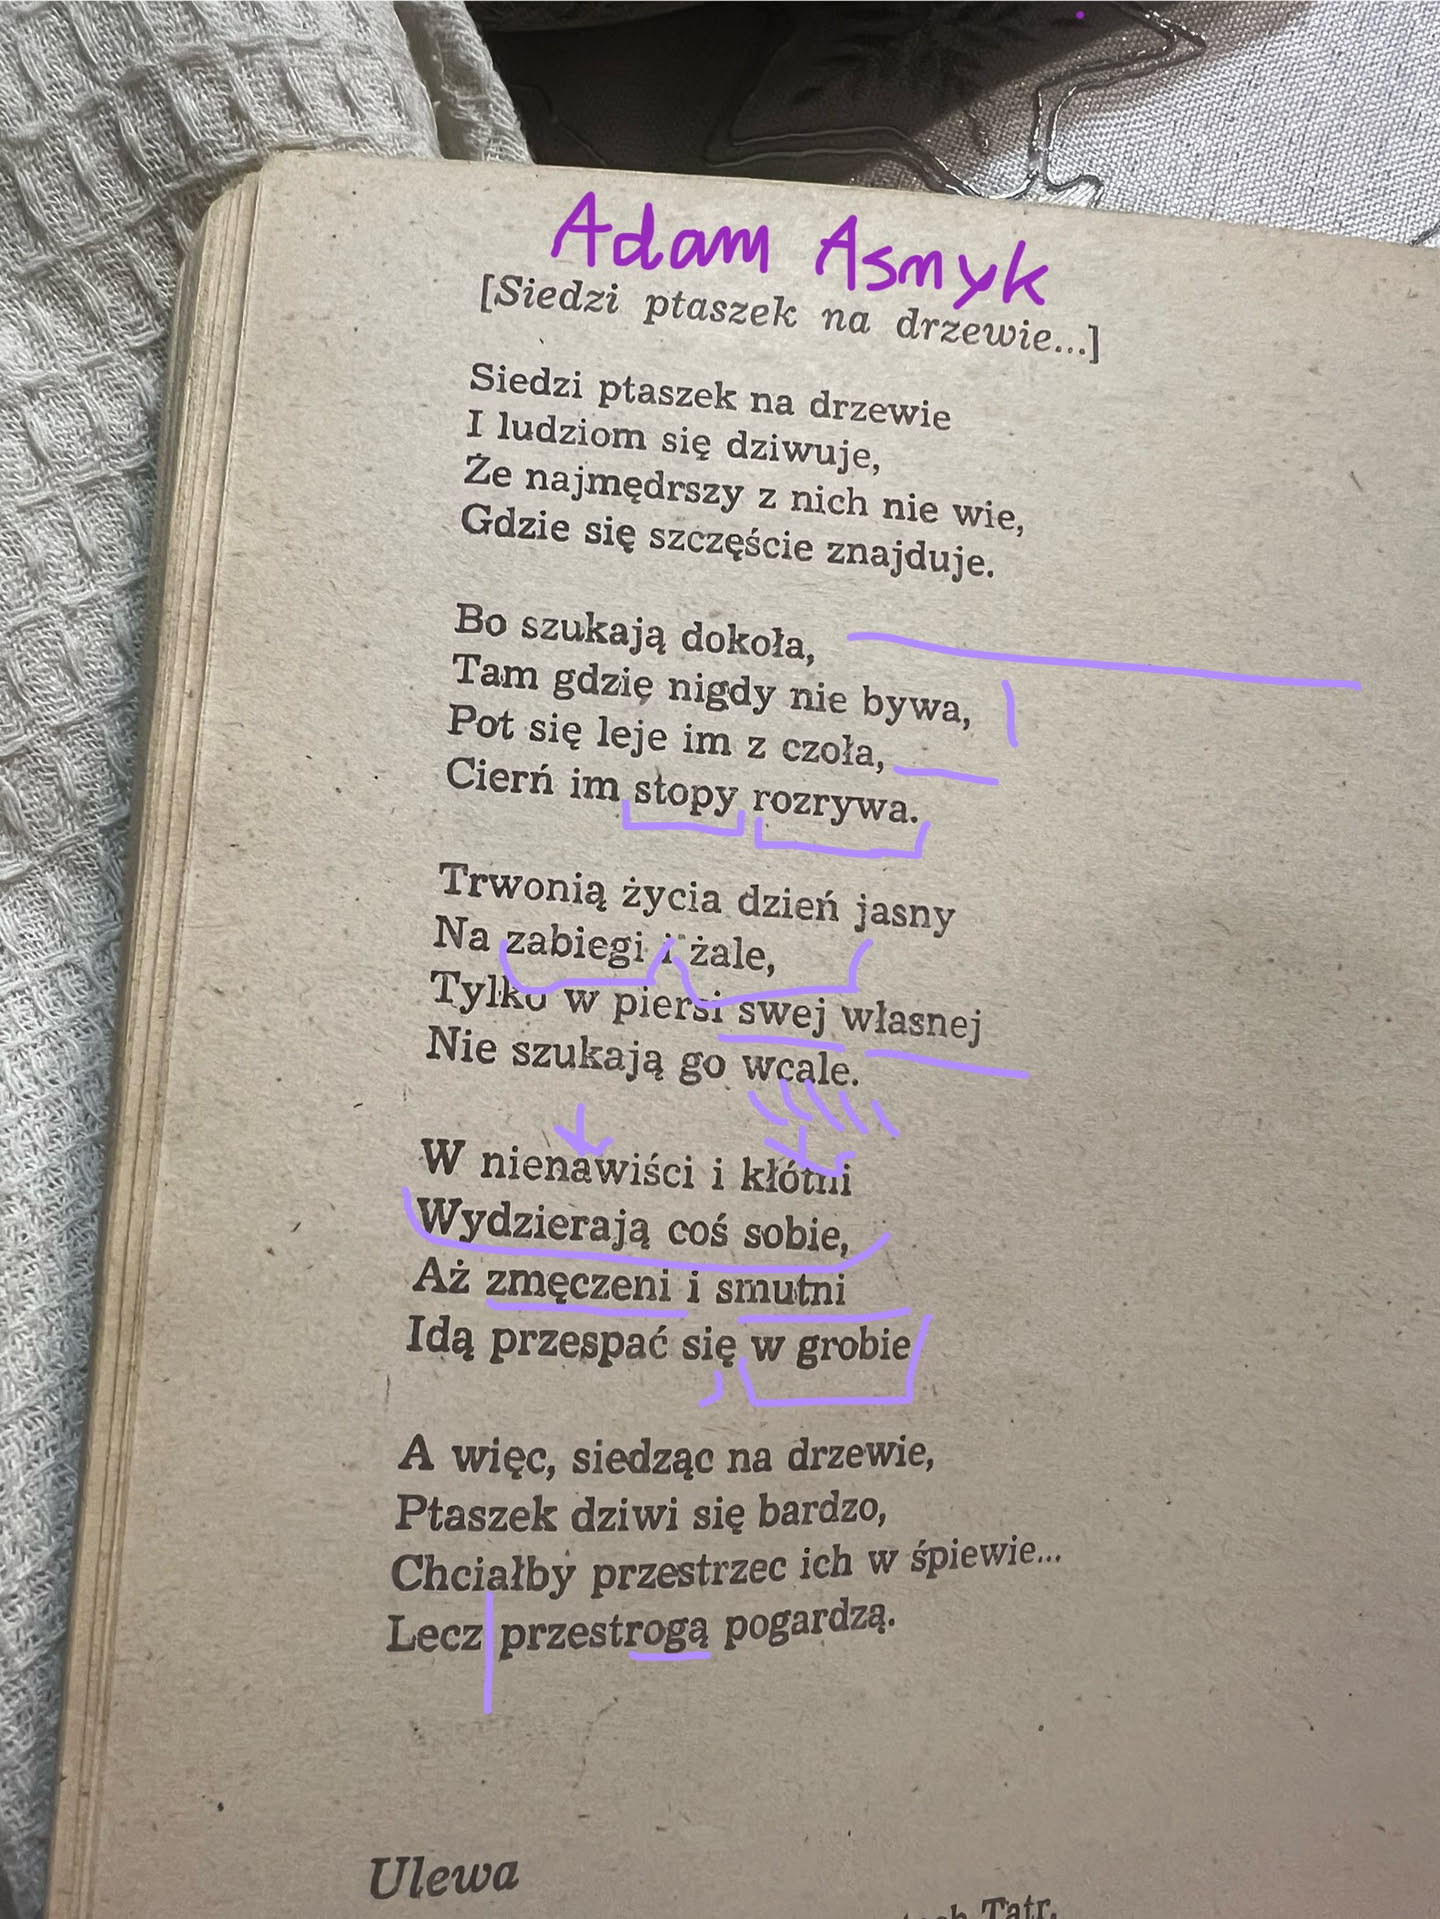 Adam Asnyk
[Siedzi ptaszek na drzewie...]
Siedzi ptaszek na drzewie
I ludziom się dziwuje,
Że najmędrszy z nich nie wie,
Gdzie się szczęście znajduje.
Bo szukają dokoła,
Tam gdzię nigdy nie bywa,
Pot się leje im z czoła,
Cierń im stopy rozrywa.
Trwonią życia dzień jasny
Na zabiegi i żale,
Tylko w piersi swej własnej
Nie szukają go wcale.
W nienawiści i kłótni
Wydzierają coś sobie,
Aż zmęczeni i smutni
Idą przespać się w grobie
A więc, siedząc na drzewie,
Ptaszek dziwi się bardzo,
Chciałby przestrzec ich w śpiewie...
Lecz przestrogą pogardzą.
Ulewa
Tatr.